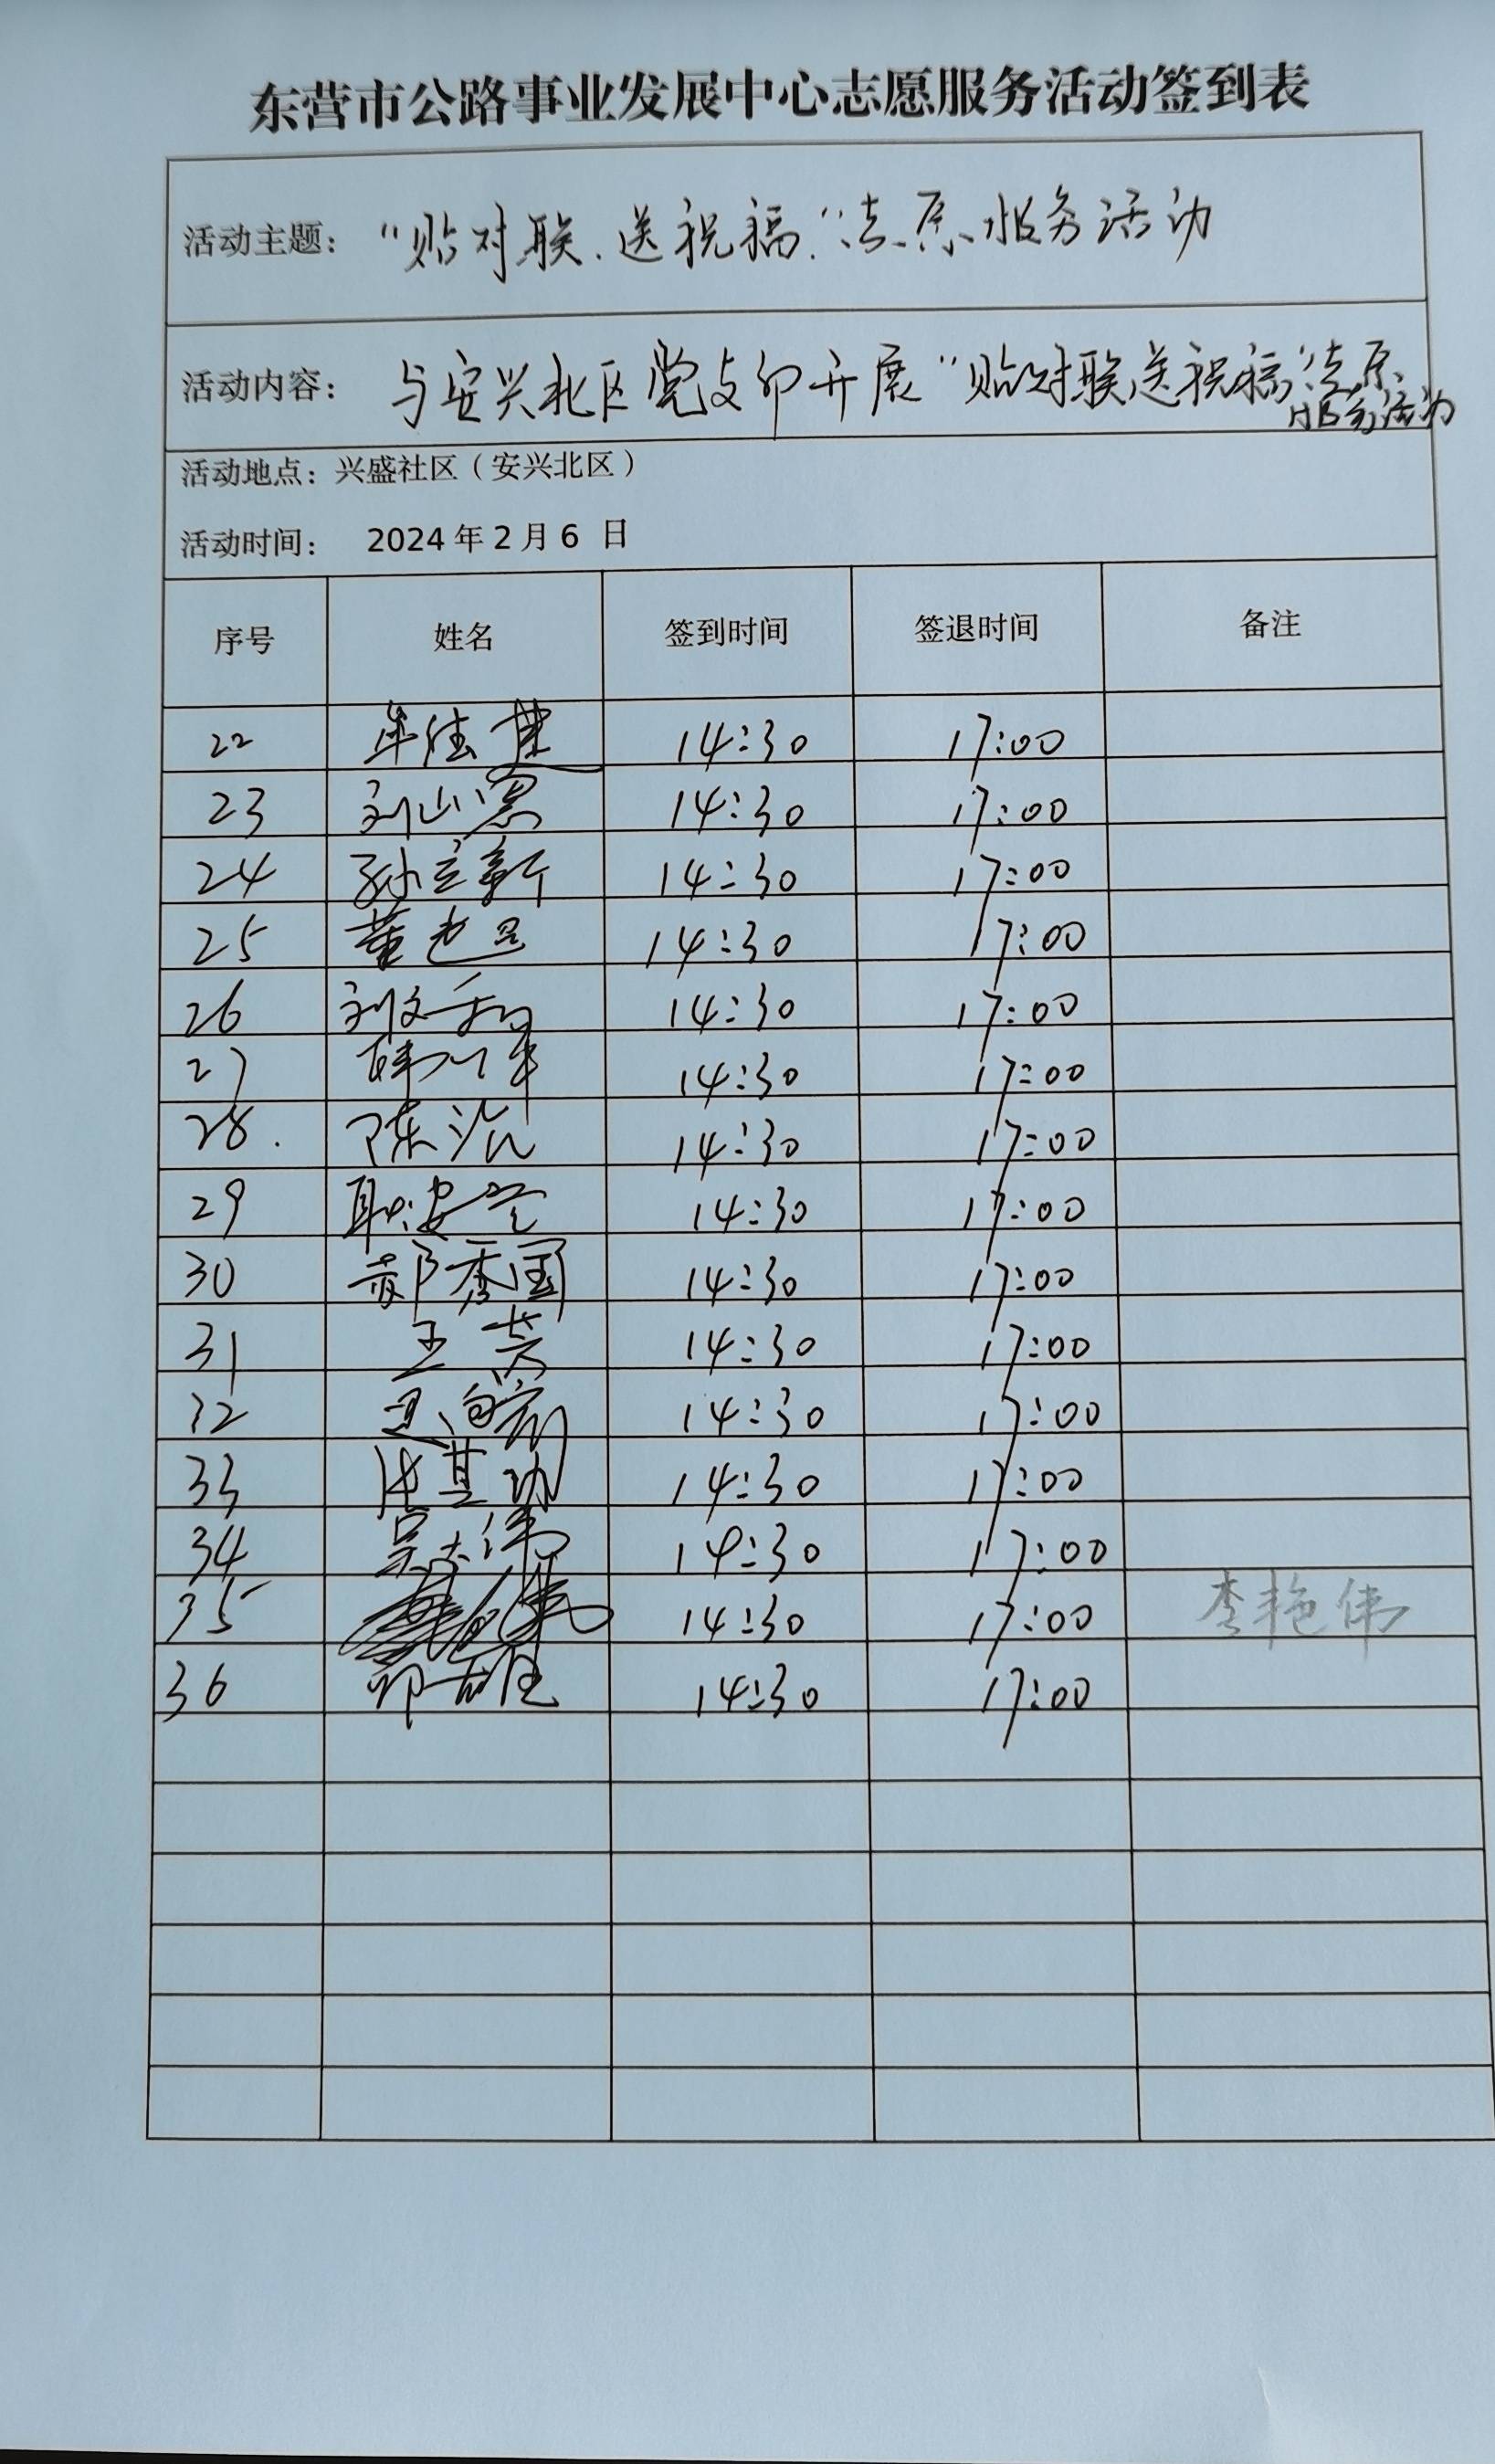 东营市公路事业发展中心志愿服务活动签到表
活动主题： "贴对联、送祝福"志愿服务活动
活动内容： 与安兴北区党支部开展"贴对联送祝福"志愿
服务活动
活动地点：兴盛社区（安兴北区）
活动时间： 2024 年 2 月 6 日
序号 姓名 签到时间 签退时间 备注
22 14:30 17:00
23 刘山 14:30 17:00
24 孙立新 14:30 17:00
25 董 14:30 17:00
26 刘文 14:30 17:00
27 韩 14:30 17:00
28. 陈 14:30 17:00
29 耿安 14:30 17:00
30 郝秀国 14:30 17:00
31 王芳 14:30 17:00
32 14:30 17:00
33 张其功 14:30 17:00
34 吴志伟 14:30 17:00
35 14:30 17:00 李艳伟
36 14:30 17:00